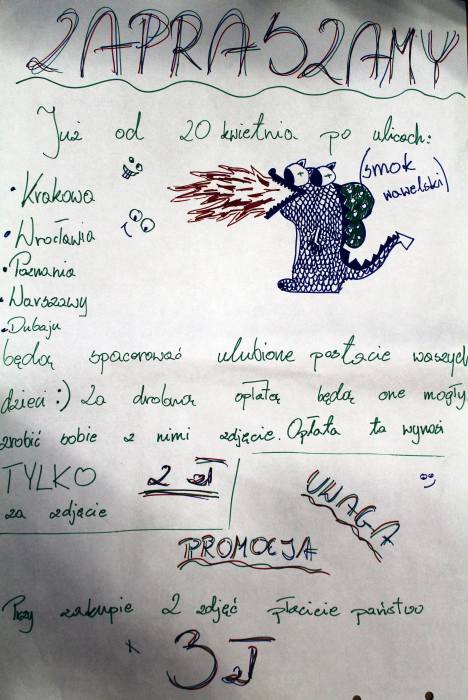 ZAPRASZAMY
Już od 20 kwietnia po ulicach:
(smok
wawelski)
• Krakowa
• Wrocławia
• Poznania
• Warszawy
• Dubaju
będą spacerować ulubione postacie waszych
dzieci :) Za drobną opłatą będą one mogły
zrobić sobie z nimi zdjęcie. Opłata ta wynosi
TYLKO 2 zł
za zdjęcie
UWAGA
PROMOCJA
Przy zakupie 2 zdjęć płacicie państwo
3 zł